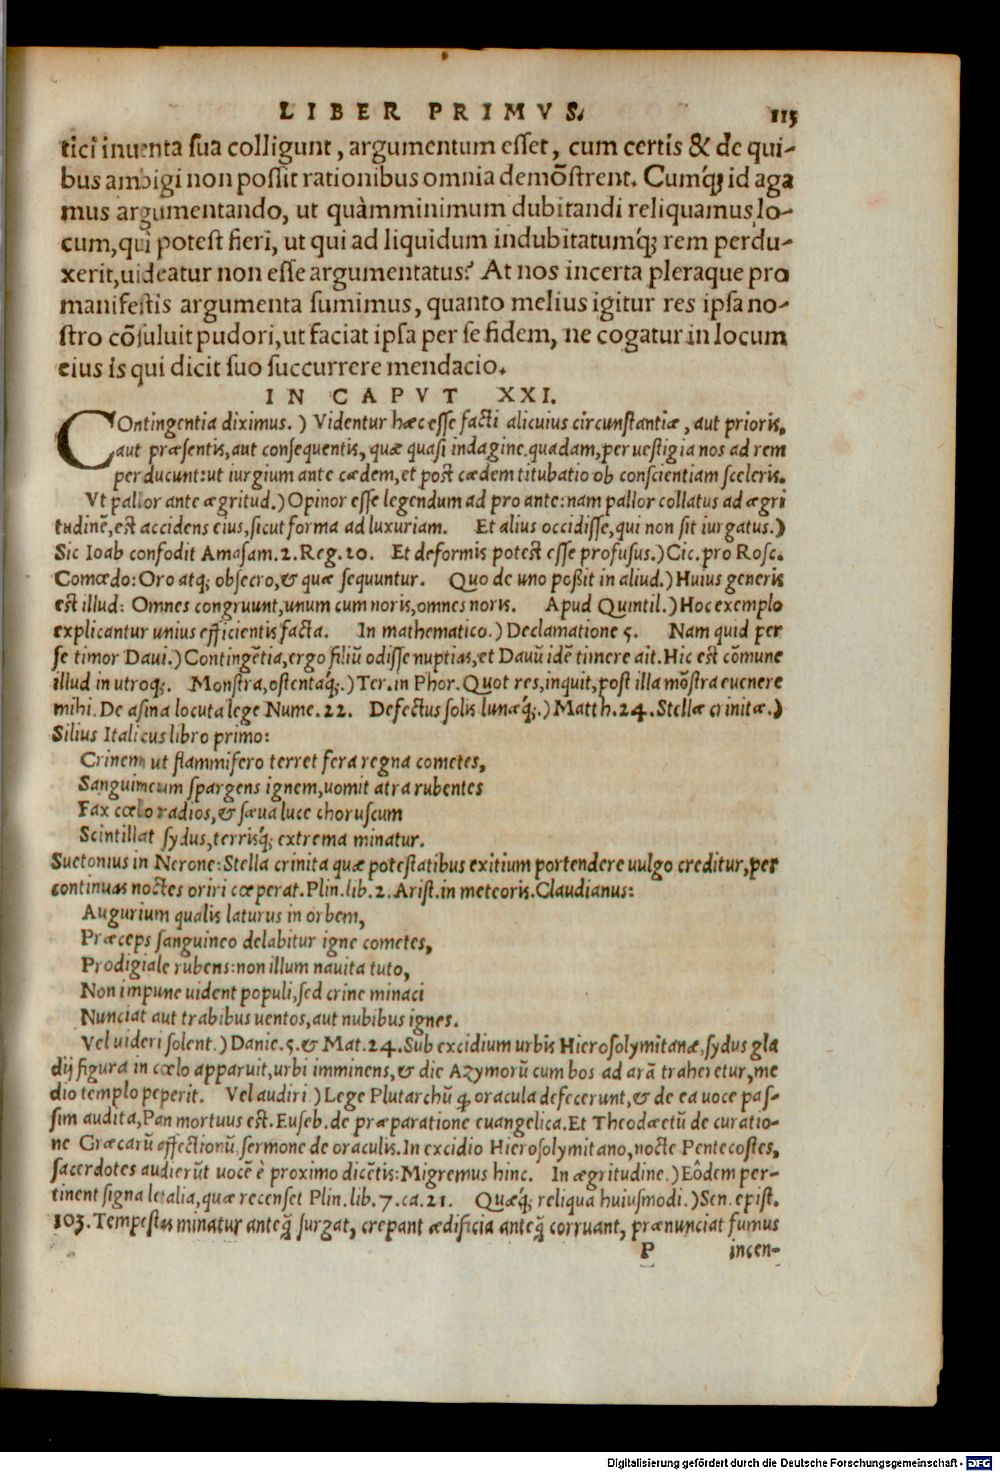 LIBER PRIMVS. 115
tici inuenta sua colligunt, argumentum esset, cum certis & de qui-
bus ambigi non possit rationibus omnia demõstrent. Cumq́; id aga
mus argumentando, ut quàmminimum dubitandi reliquamus lo-
cum, qui potest fieri, ut qui ad liquidum indubitatumq́; rem perdu-
xerit, uideatur non esse argumentatus? At nos incerta pleraque pro
manifestis argumenta sumimus, quanto melius igitur res ipsa no-
stro cõsuluit pudori, ut faciat ipsa per se fidem, ne cogatur in locum
eius is qui dicit suo succurrere mendacio.
IN CAPVT XXI.
COntingentia diximus.) Videntur hæc esse facti alicuius circunstantiæ, aut prioris,
aut præsentis, aut consequentis, quæ quasi indagine quadam, per uestigia nos ad rem
perducunt: ut iurgium ante cædem, et post cædem titubatio ob conscientiam sceleris.
Vt pallor ante ægritud.) Opinor esse legendum ad pro ante: nam pallor collatus ad ægri
tudinẽ, est accidens eius, sicut forma ad luxuriam. Et alius occidisse, qui non sit iurgatus.)
Sic Ioab confodit Amasam. 2. Reg. 20. Et deformis potest esse profusus.) Cic. pro Rosc.
Comœdo: Oro atq; obsecro, & quæ sequuntur. Quo de uno poßit in aliud.) Huius generis
est illud: Omnes congruunt, unum cum noris, omnes noris. Apud Quintil.) Hoc exemplo
explicantur unius efficientis facta. In mathematico.) Declamatione 5. Nam quid per
se timor Daui.) Contingẽtia, ergo filiũ odisse nuptias, et Dauũ idẽ timere ait. Hic est cõmune
illud in utroq;. Monstra, ostentaq́;.) Ter. in Phor. Quot res, inquit, post illa mõstra euenere
mihi. De asina locuta lege Nume. 22. Defectus solis lunæq́;.) Matth. 24. Stellæ crinitæ.)
Silius Italicus libro primo:
Crinem ut flammifero terret fera regna cometes,
Sanguineum spargens ignem, uomit atra rubentes
Fax cœlo radios, & sæua luce choruscum
Scintillat sydus, terrisq́; extrema minatur.
Suetonius in Nerone: Stella crinita quæ potestatibus exitium portendere uulgo creditur, per
continuas noctes oriri cœperat. Plin. lib. 2. Arist. in meteoris. Claudianus:
Augurium qualis laturus in orbem,
Præceps sanguineo delabitur igne cometes,
Prodigiale rubens: non illum nauita tuto,
Non impune uident populi, sed crine minaci
Nunciat aut trabibus uentos, aut nubibus ignes.
Vel uideri solent.) Danie. 5. & Mat. 24. Sub excidium urbis Hierosolymitanæ, sydus gla
dij figura in cœlo apparuit, urbi imminens, & die Azymorũ cum bos ad arã traheretur, me
dio templo peperit. Vel audiri) Lege Plutarchũ ꝙ oracula defecerunt, & de ea uoce pas-
sim audita, Pan mortuus est. Euseb. de præparatione euangelica. Et Theodætũ de curatio-
ne Græcarũ affectionũ, sermone de oraculis. In excidio Hierosolymitano, nocte Pentecostes,
sacerdotes audierũt uocẽ è proximo dicẽtis: Migremus hinc. In ægritudine.) Eôdem per-
tinent signa letalia, quæ recenset Plin. lib. 7. ca. 21. Quæq́; reliqua huiusmodi.) Sen. epist.
103. Tempestas minatur anteq̃ surgat, crepant ædificia anteq̃ corruant, prænunciat fumus
P incen-
Digitalisierung gefördert durch die Deutsche Forschungsgemeinschaft - DFG